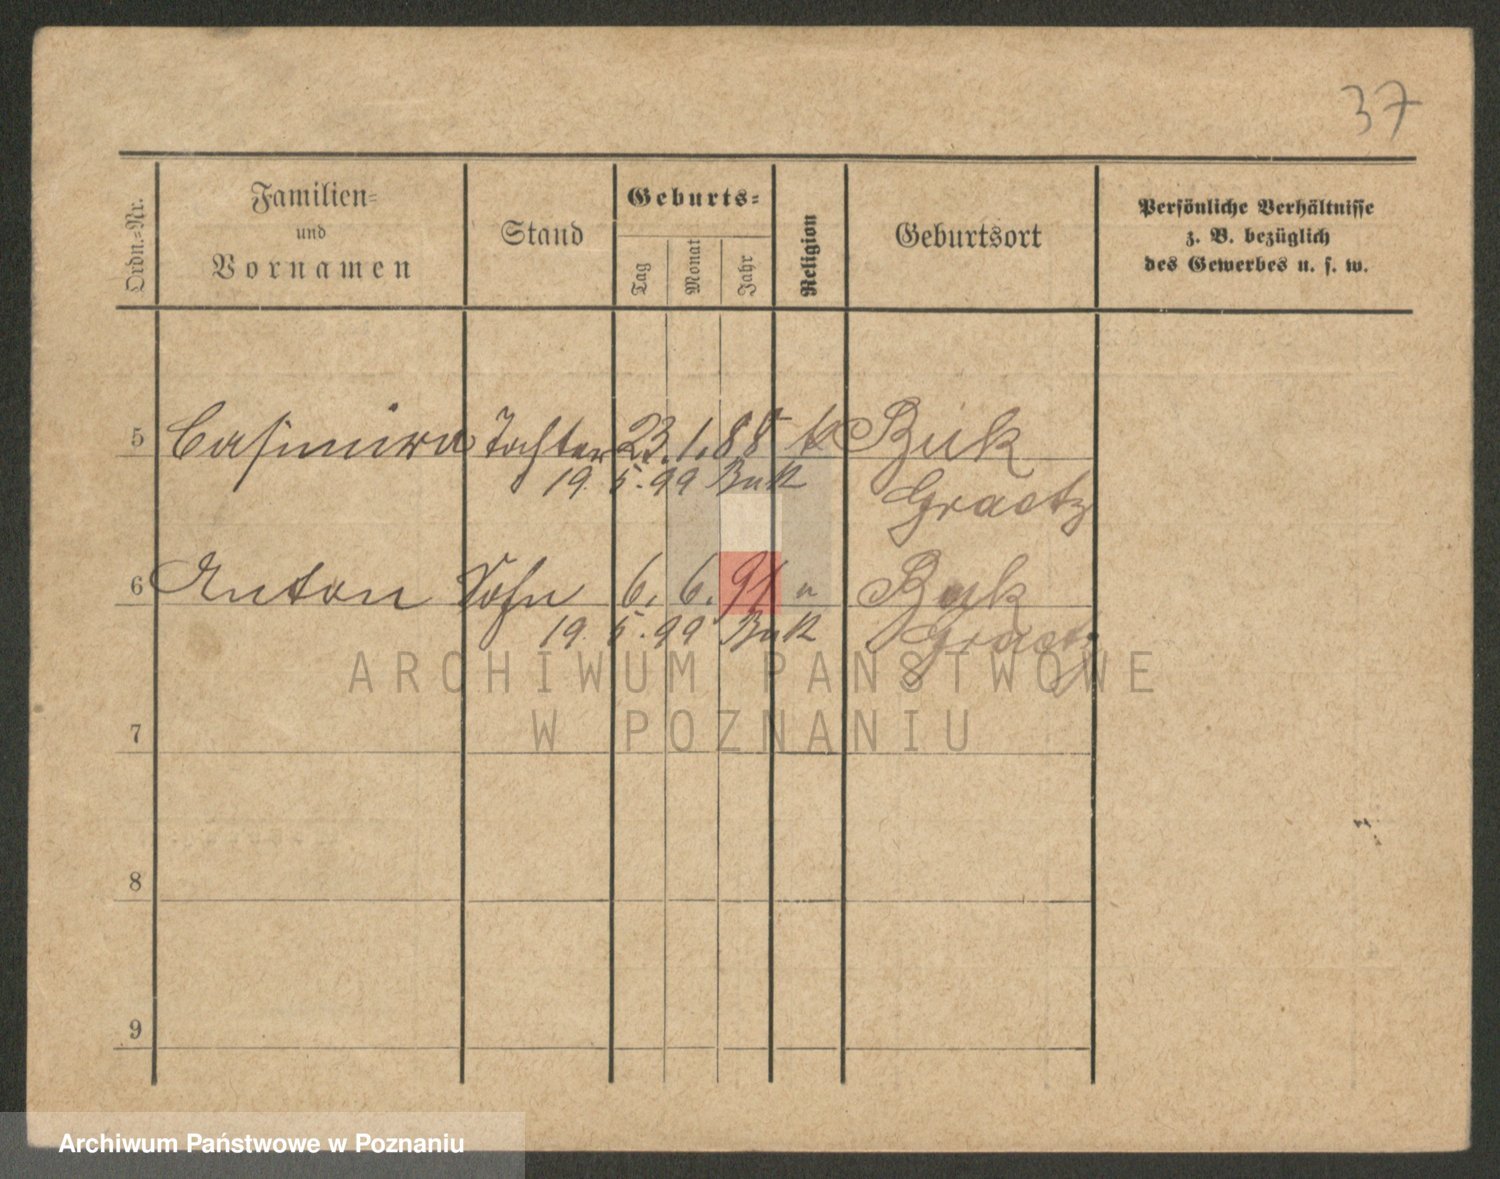 37
Ordn.-Nr.
Familien-
und
Vornamen
Stand
Geburts-
Tag
Monat
Jahr
Religion
Geburtsort
Persönliche Verhältnisse
z. B. bezüglich
des Gewerbes u. s. w.
5 Casimira Tochter 23. 1. 88 k Buk
19. 5. 99 Buk Graetz
6 Anton Sohn 6. 6. 91 " Buk
19. 5. 99 Buk Graetz
ARCHIWUM PAŃSTWOWE
W POZNANIU
7
8
9
Archiwum Państwowe w Poznaniu